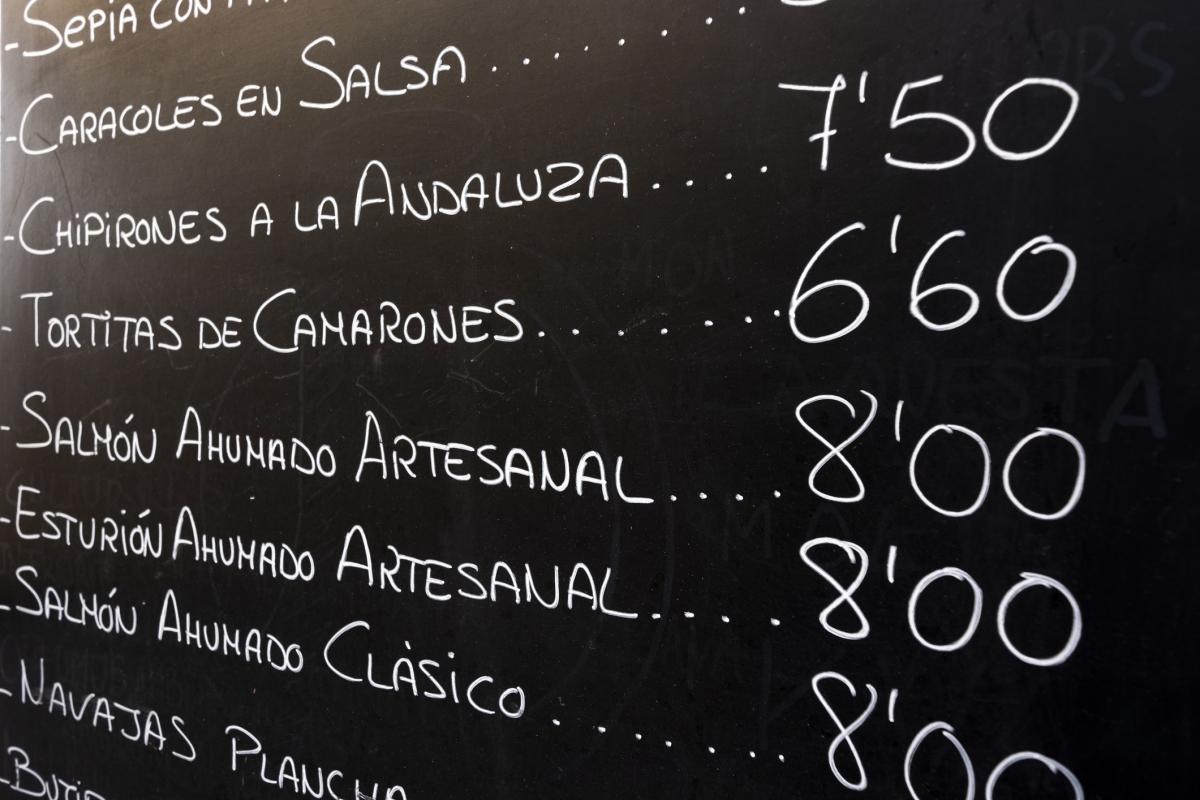 -SEPIA CON
-CARACOLES EN SALSA . . . . . . .
-CHIPIRONES A LA ANDALUZA . . . . . 7'50
-TORTITAS DE CAMARONES . . . . . . . 6'60
-SALMÓN AHUMADO ARTESANAL . . . . . 8'00
-ESTURIÓN AHUMADO ARTESANAL . . . . . 8'00
-SALMÓN AHUMADO CLÁSICO . . . . . . . 8'00
-NAVAJAS PLANCHA